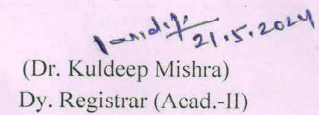 21.5.2024
(Dr. Kuldeep Mishra)
Dy. Registrar (Acad.-II)